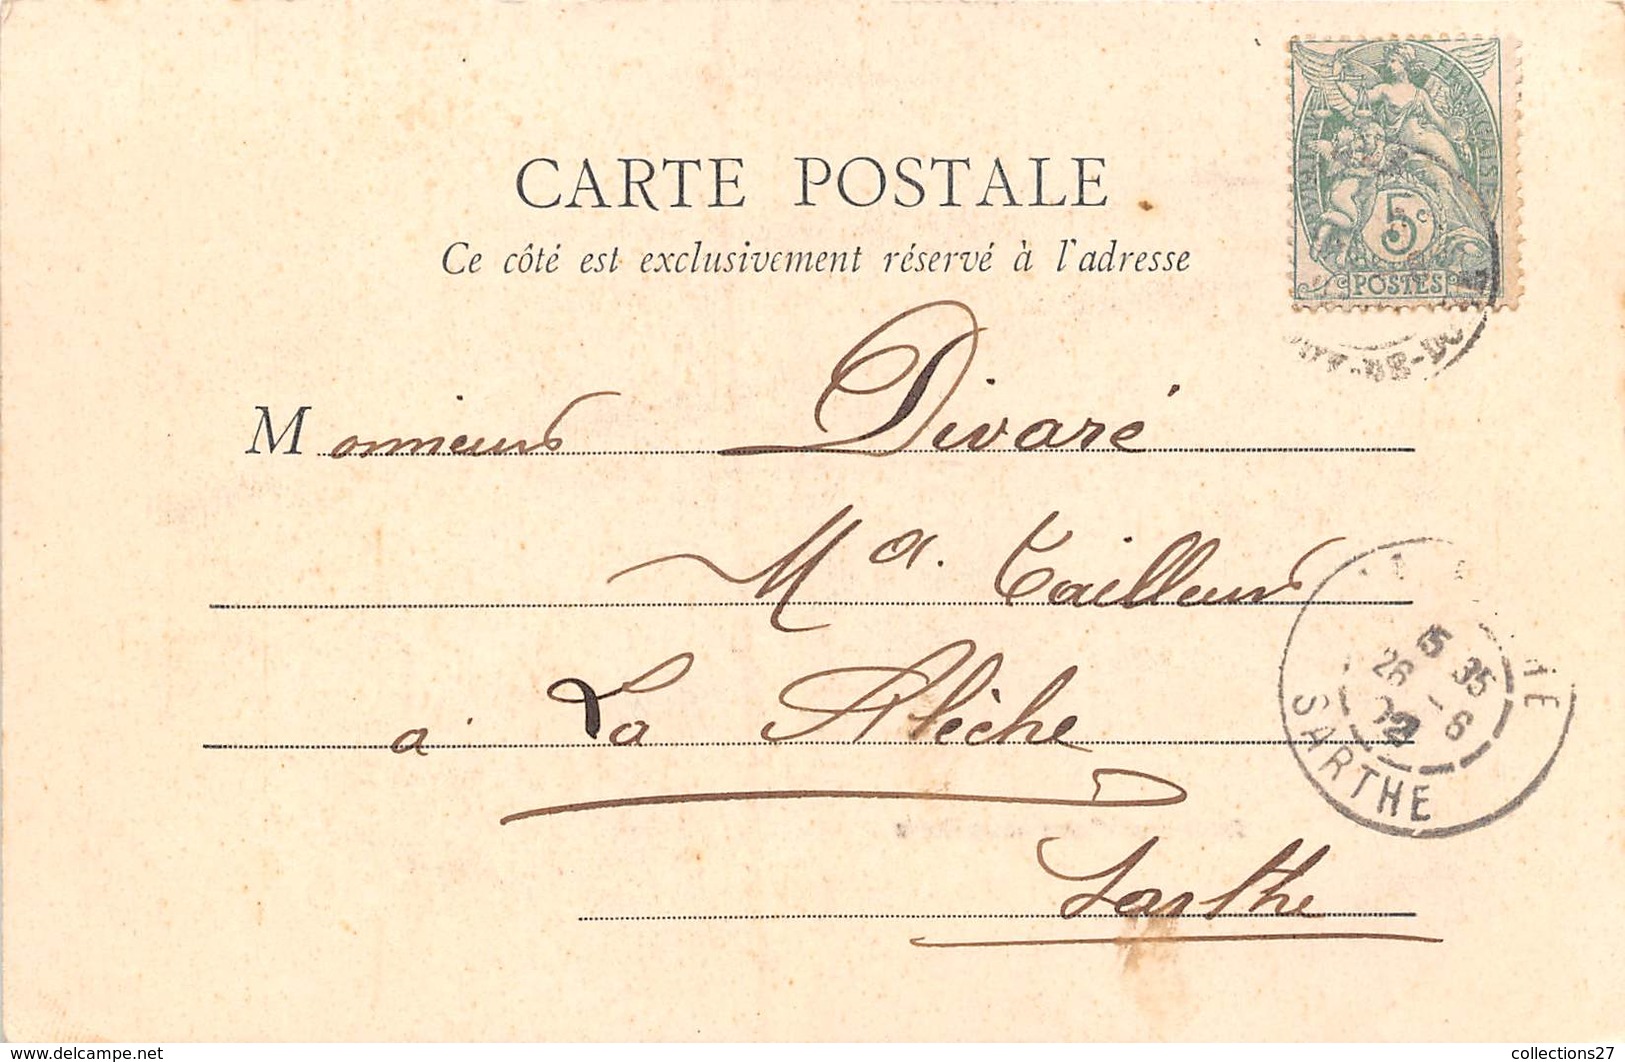 CARTE POSTALE
Ce côté est exclusivement réservé à l'adresse
5c
POSTES
Monsieur Divaré
Md. Tailleur
a La Flèche
Sarthe
5 35
26 - 6
02
SARTHE
www.delcampe.net
collections27